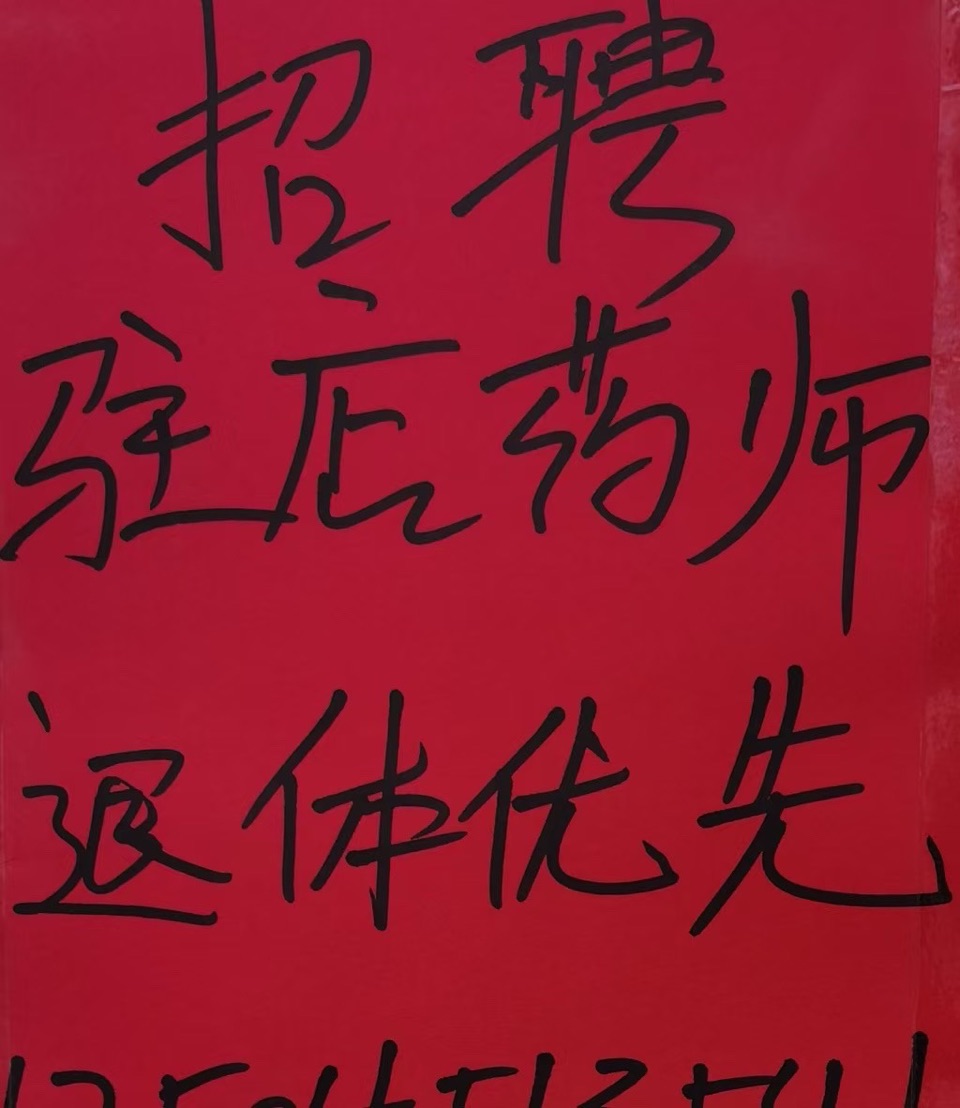 招聘
驻店药师
退休优先